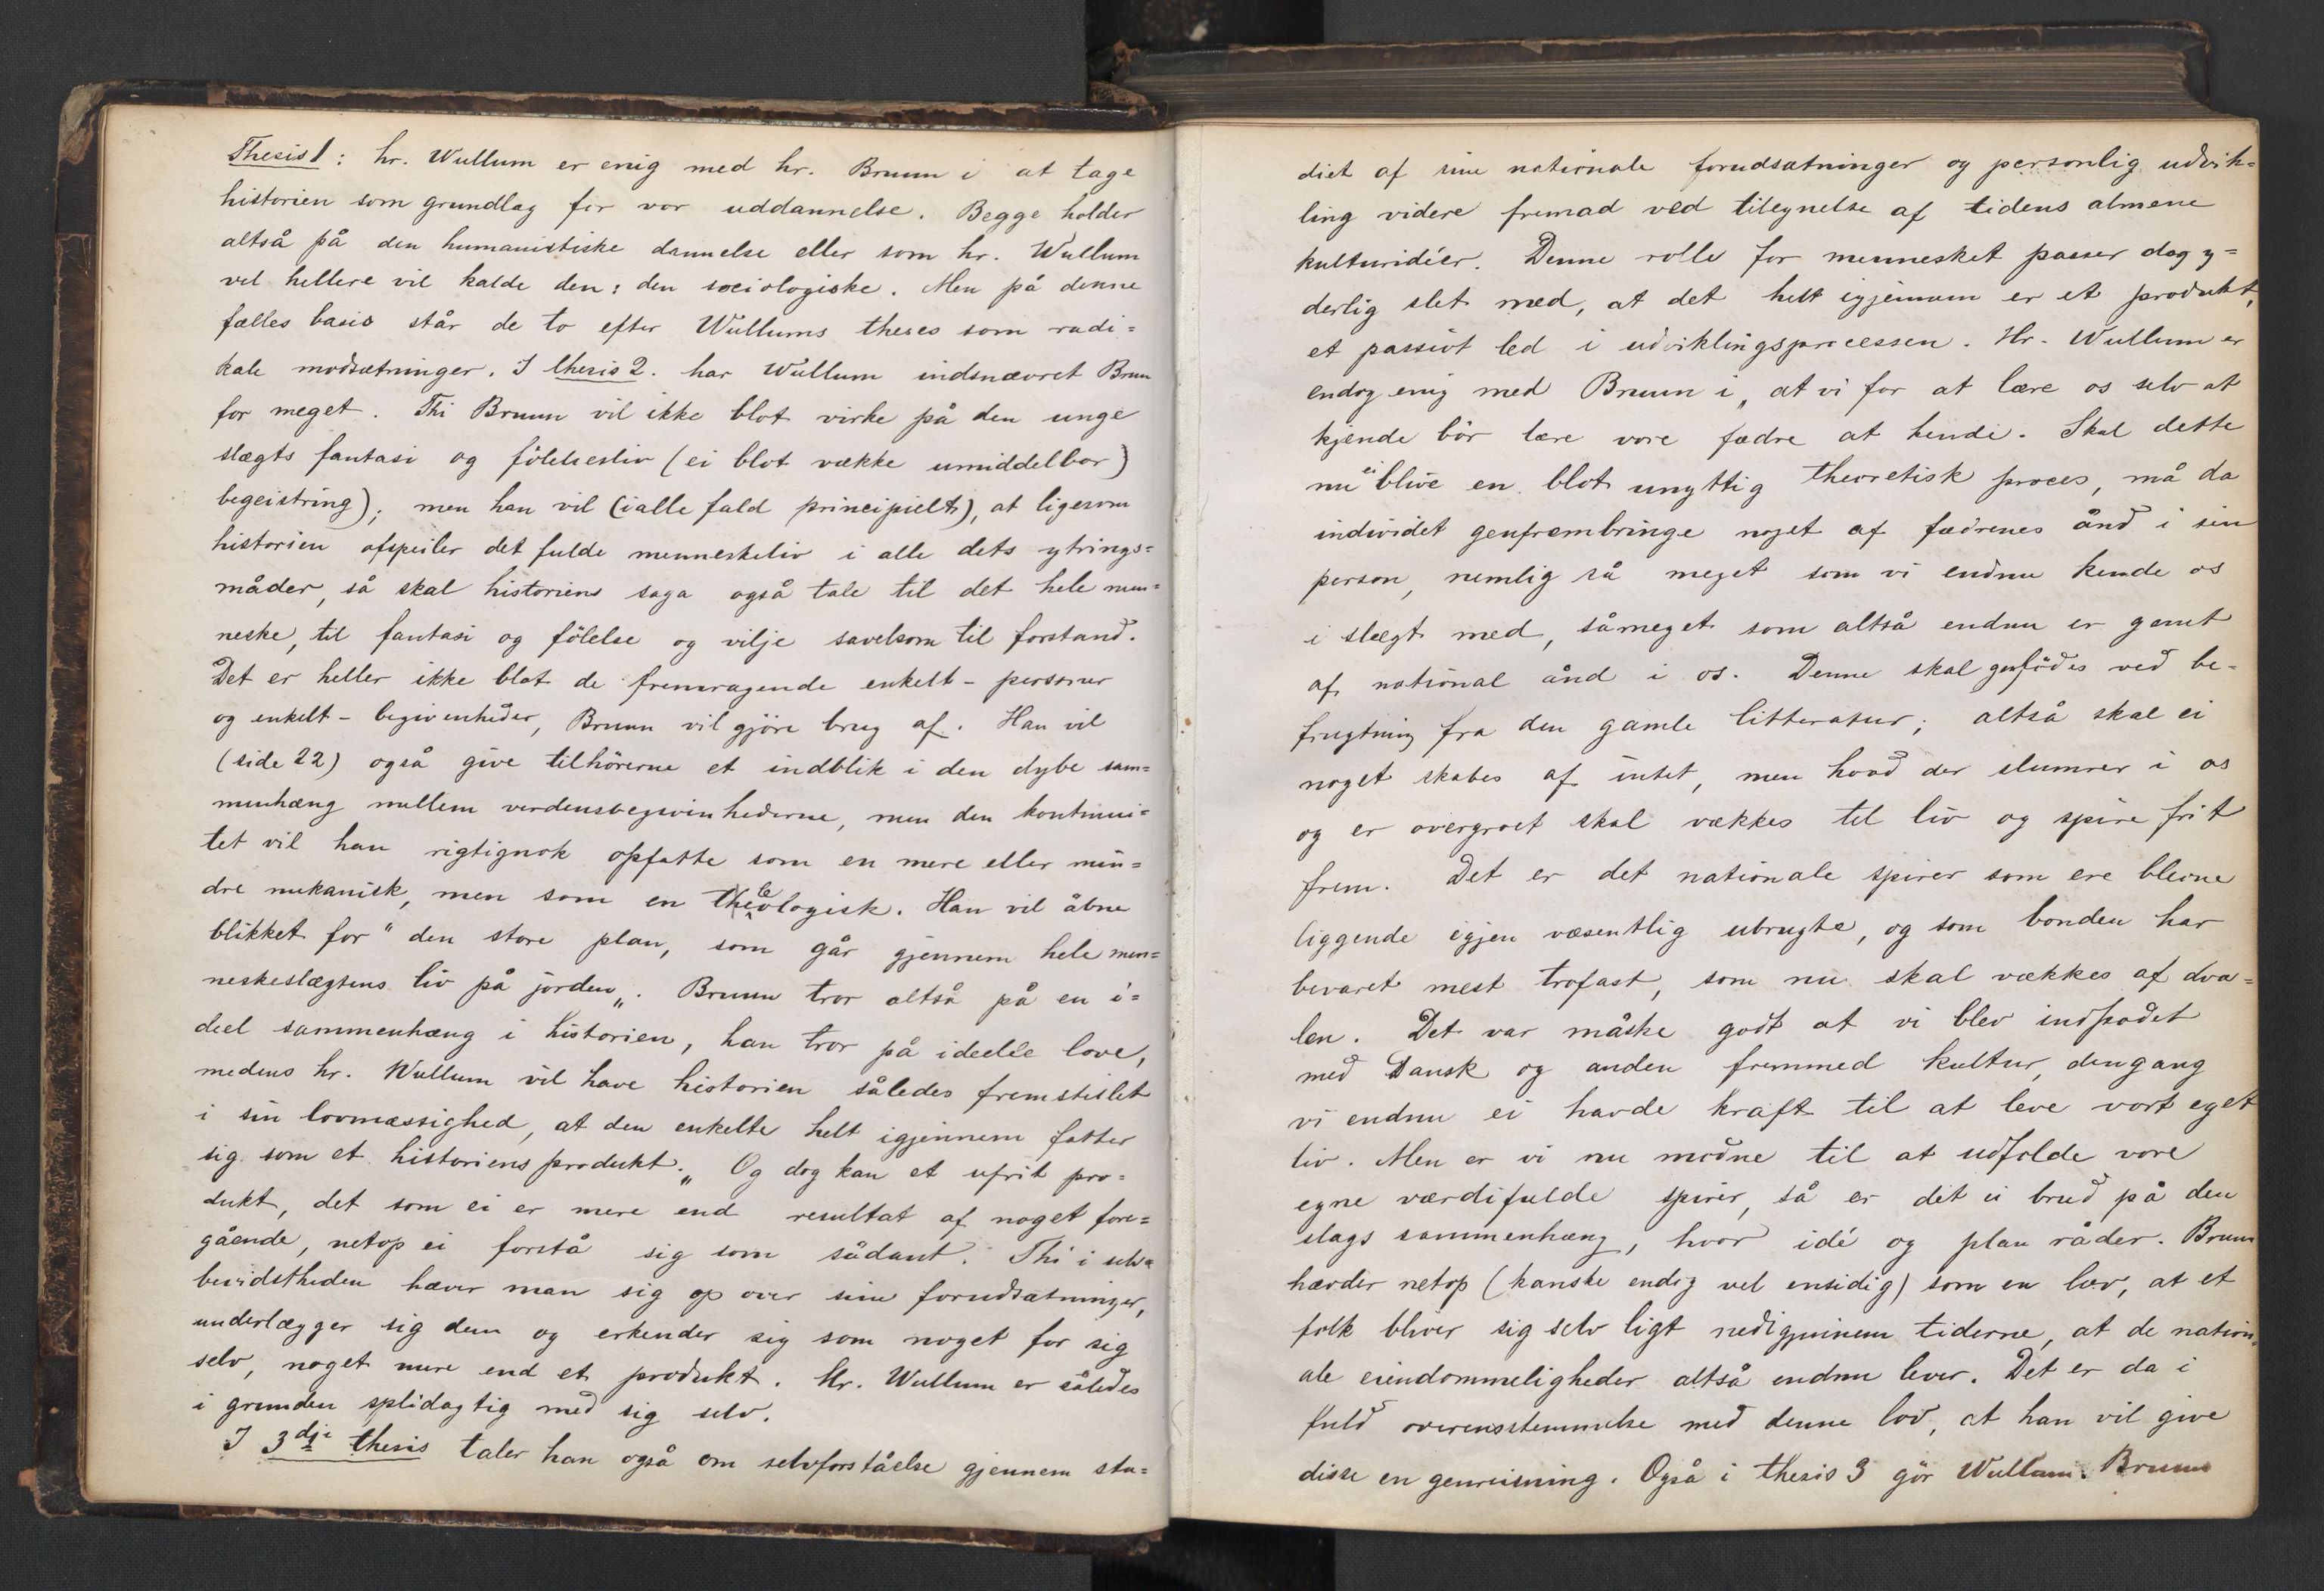 Thesis 1: hr. Wullum er enig med hr. Bruun i at tage
historien som grundlag for vor uddannelse. Begge holder
altså på den humanistiske dannelse eller som hr. Wullum
vel hellere vil kalde den: den sociologiske. Men på denne
fælles basis står de to efter Wullums theses som radi=
kale modsætninger. I thesis 2. har Wullum indsnævret Brun
for meget. Thi Bruun vil ikke blot virke på den unge
slægts fantasi og følelsesliv (ei blot vække umiddelbar)
begeistring); men han vil (ialle fald principielt), at ligesom
historien afspeiler det fulde menneskeliv i alle dets ytrings=
måder, så skal historiens saga også tale til det hele men=
neske, til fantasi og følelse og vilje savelsom til forstand.
Det er heller ikke blot de fremragende enkelt-personer
og enkelt-begivenheder, Bruun vil gjöre brug af. Han vil
(side 22) også give tilhörerne et indblik i den dybe sam=
menhæng mellem verdensbegivinhederne, men den kontinui=
tet vil han rigtignok opfatte som en mere eller min=
dre mekanisk, men som en theleologisk. Han vil åbne
blikket for "den store plan, som går gjennem hele men=
neskeslægtens liv på jorden„. Bruun tror altså på en i=
deel sammenhæng i historien, han tror på ideelle love,
medens hr. Wullum vil have historien således fremstillet
i sin lovmæssighed, at den enkelte helt igjennem fatter
sig som et historiens produkt.„ Og dog kan et ufrit pro=
dukt, det som ei er mere end resultat af noget fore=
gående, netop ei forstå sig som sådant. Thi i selv=
bevidstheden hæver man sig op over sine forudsætninger,
underlægger sig dem og erkender sig som noget for sig
selv, noget mere end et produkt. Hr. Wullum er således
i grunden splidagtig med sig selv.
I 3dje thesis taler han også om selvforståelse gjennem stu=
diet af sine nationale forudsætninger og personlig udvik=
ling videre fremad ved tilegnelse af tidens almene
kulturidéer. Denne rolle for mennesket passer dog y=
derlig slet med, at det helt igjennem er et produkt,
et passivt led i udviklingsprocessen. Hr. Wullum er
endog enig med Bruun i„ at vi for at lære os selv at
kjende bör lære vore fædre at kende. Skal dette
nu ei blive en blot unyttig theoretisk proces, må da
individet genfrembringe noget af fædrenes ånd i sin
person, nemlig så meget som vi endnu kende os
i slægt med, såmeget som altså endnu er gemt
af national ånd i os. Denne skal genfödes ved be=
frugtning fra den gamle litteratur; altså skal ei
noget skabes af intet, men hvad der slumrer i os
og er overgroet skal vækkes til liv og spire frit
frem. Det er det nationale spirer som ere blevne
liggende igjen væsentlig ubrugte, og som bonden har
bevaret mest trofast, som nu skal vækkes af dva=
len. Det var måske godt at vi blev indpodet
med Dansk og anden fremmed kultur, dengang
vi endnu ei havde kraft til at leve vort eget
liv. Men er vi nu modne til at udfolde vore
egne værdifulde spirer, så er det ei brud på den
slags sammenhæng, hvor idé og plan råder. Bruun
hævder netop (kanske endog vel ensidig) som en lov, at et
folk bliver sig selv ligt nedigjennem tiderne, at de nation=
ale eiendommeligheder altså endnu lever. Det er da i
fuld overensstemmelse med denne lov, at han vil give
disse en genreisning. Også i thesis 3 gör Wullum Bruun